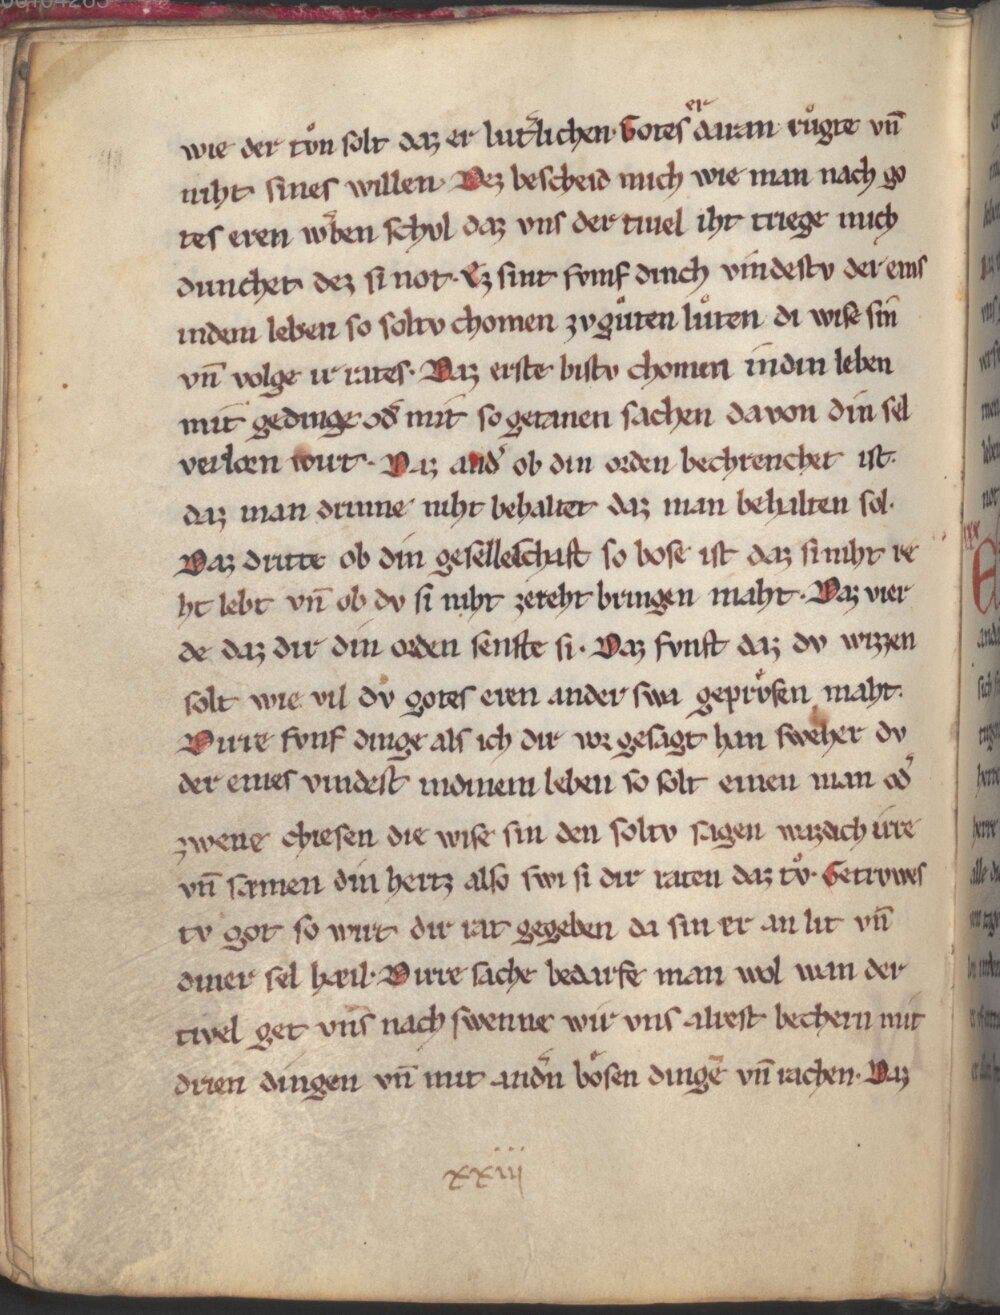 wie der tůn solt daz er lutˀlichen Gotes er daran růgte vn̄
niht sines willen. Dez bescheid mich wie man nach go
tes eren wˀben schvl daz vns der tiuel iht triege mich
dunchet dez si not. Ez sint fvnf dinch vindestv der eins
indem leben so soltv chomen zv gůten lůten di wise sin
vn̄ volge ir rates. Daz erste bistv chomen indin leben
mit gedinge odˀ mit so getanen sachen davon din sel
verlorn wirt. Daz andˀ ob din orden bechrenchet ist.
daz man drinne niht behaltet daz man behalten sol.
Daz dritte ob din geselleschaft so bose ist daz si niht re
ht lebt vn̄ ob dv si niht zereht bringen maht. Daz vier
de daz dir din orden senfte si. Daz fvnft daz dv wizzen
solt wie vil dv gotes eren anderswa geprůfen maht.
Dirre fvnf dinge als ich dir vor gesagt han sweher dv
der eines vindest indinem leben so solt einen man odˀ
zwene chiesen die wise sin den soltv sagen waz dich irre
vn̄ samen din hertz also swi si dir raten daz tů. Getrvwes
tv got so wirt dir rat gegeben da sin er an lit vn̄
diner sel hæil. Dirre sache bedarfe man wol wan der
tivel get vns nach swenne wir vns alrest bechern mit
drien dingen vn̄ mit andˀn bösen dingē vn̄ sachen. Daz
xxiii